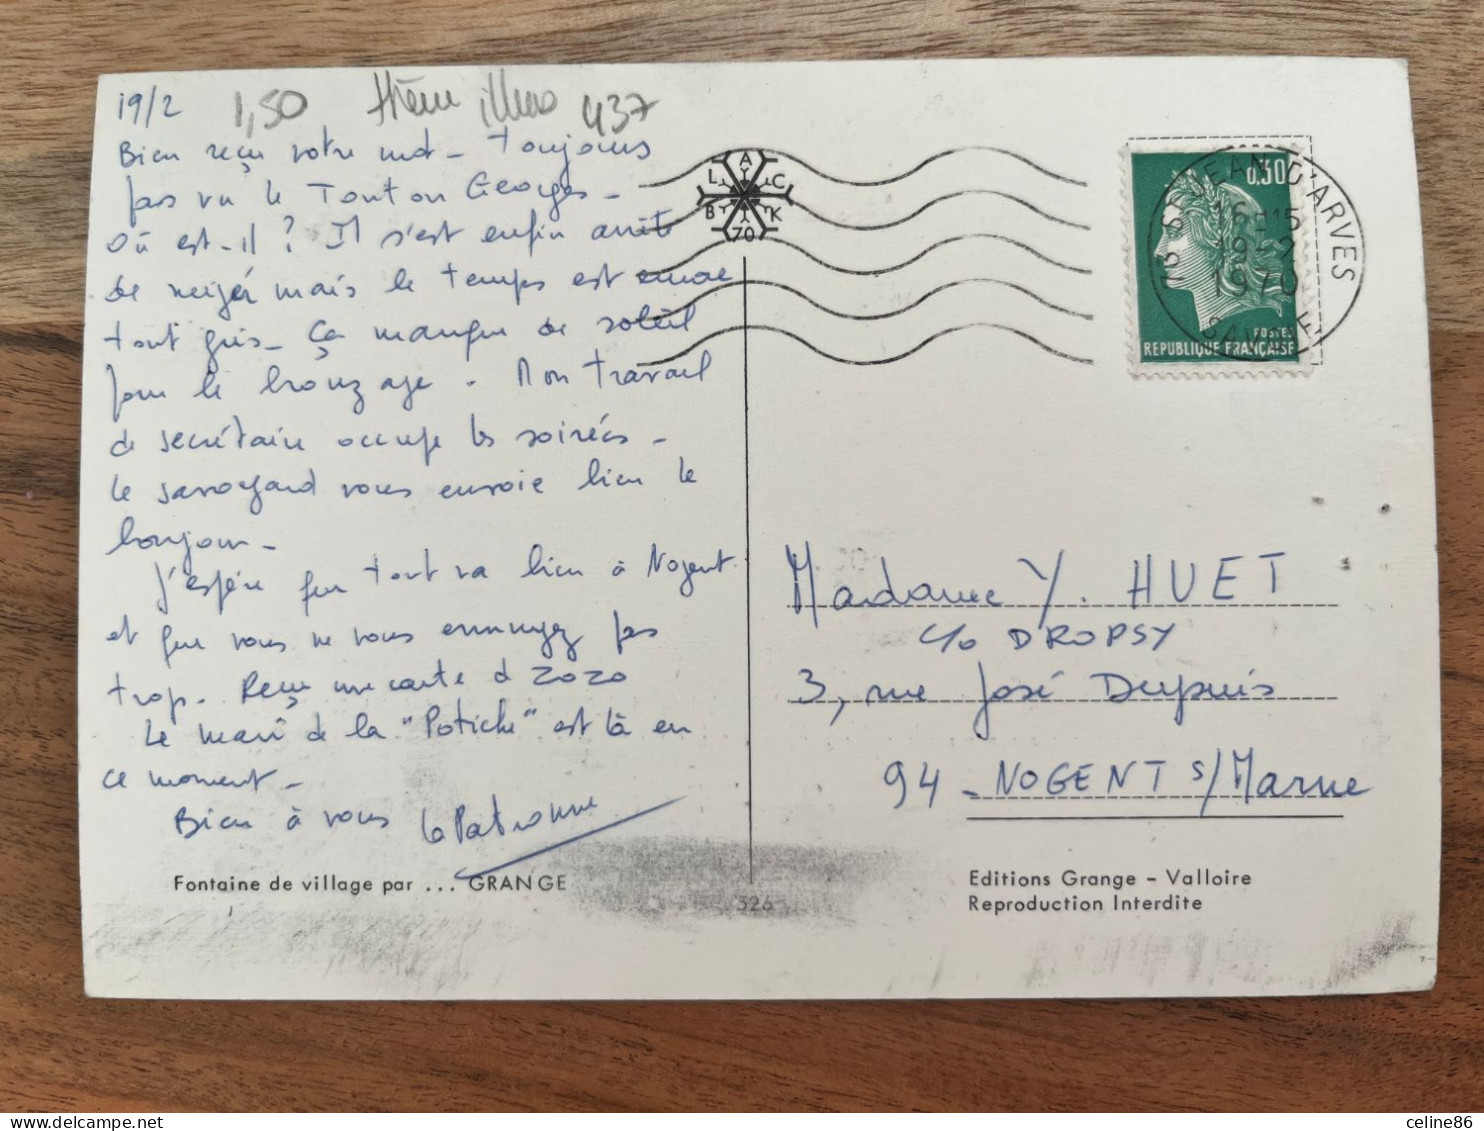 19/2
1,50
437
Bien reçu votre mot - toujours
pas vu le Tonton Georges -
Où est-il ? Il s'est enfin arrêté
de neiger mais le temps est encore
tout gris - Ça manque de soleil
pour le bronzage . Mon travail
de secrétaire occupe les soirées -
Le savoyard vous envoie bien le
bonjour -
J'espère que tout va bien à Nogent
et que vous ne vous ennuyez pas
trop. Reçu une carte d ZOZO
Le mari de la "Potiche" est là en
ce moment -
Bien à vous la Patronne
Fontaine de village par ... GRANGE
326
ALCBK
70
0,30
POSTES
REPUBLIQUE FRANÇAISE
ST JEAN D'ARVES
16 H 15
19-2
1970
SAVOIE
Madame Y. HUET
c/o DROPSY
3, rue José Dupuis
94 - NOGENT s/Marne
Editions Grange – Valloire
Reproduction Interdite
delcampe.net
celine86